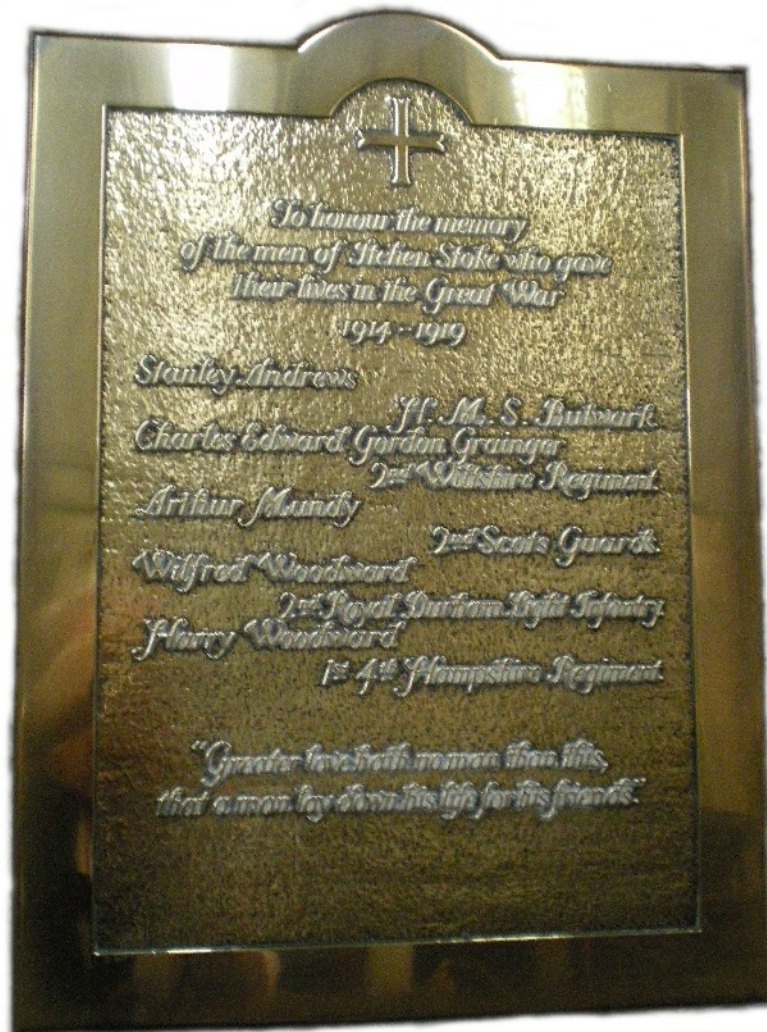 To honour the memory
of the men of Itchen Stoke who gave
their lives in the Great War
1914-1919
Stanley Andrews
H. M. S. Bulwark
Charles Edward Gordon Grainger
2nd Wiltshire Regiment
Arthur Mundy
2nd Scots Guards
Wilfred Woodward
2nd Royal Durham Light Infantry
Harry Woodward
1st 4th Hampshire Regiment
"Greater love hath no man than this,
that a man lay down his life for his friends."